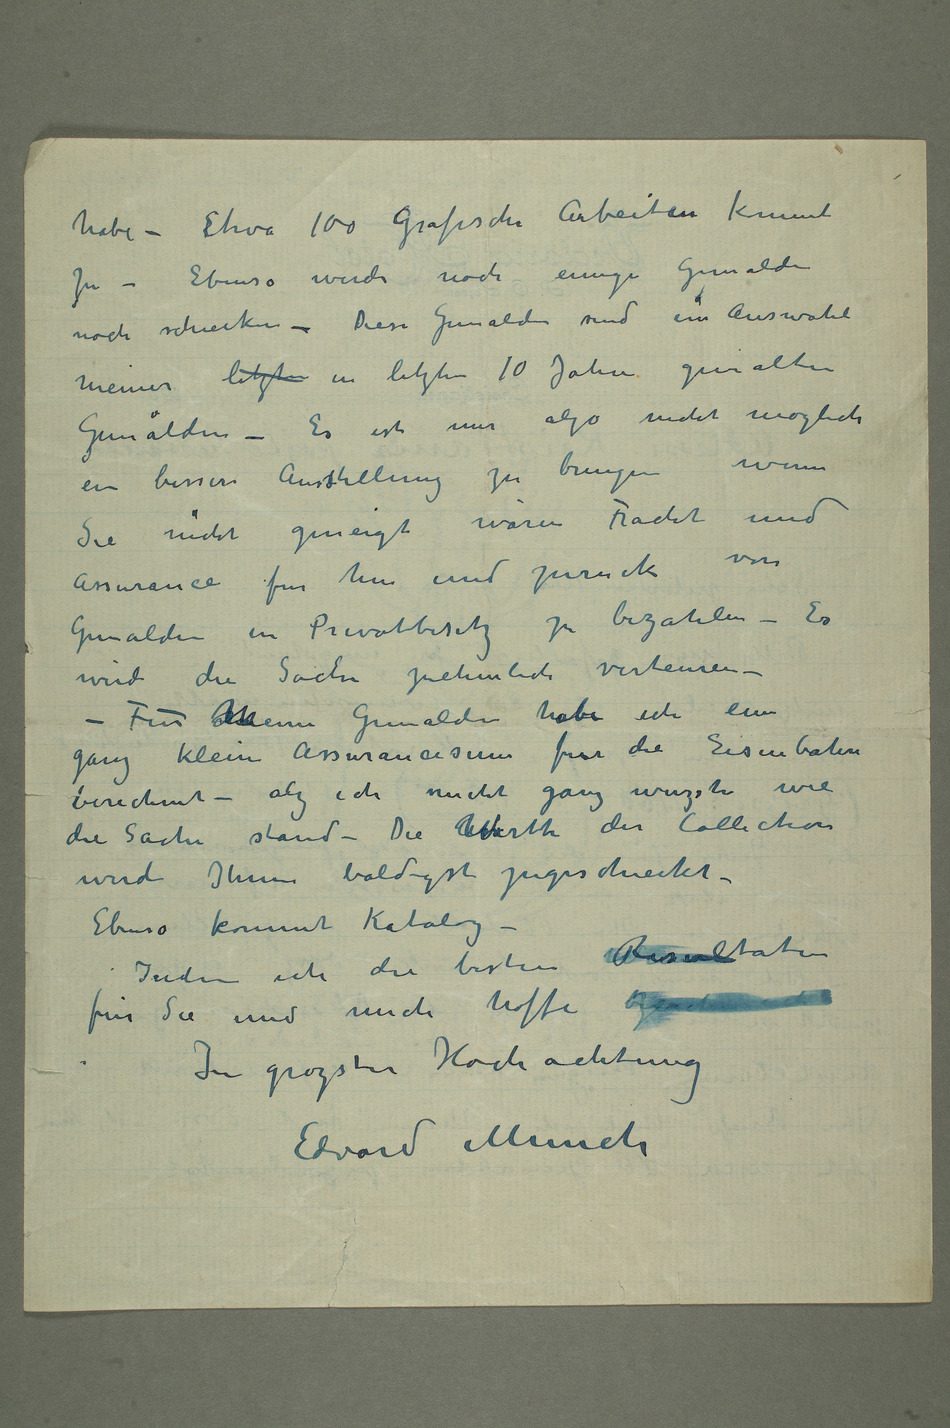 habe – Etwa 100 Grafische Arbeiten kommt
zu – Ebenso werde noch einige Gemälde
noch schicken – Diese Gemälde sind ein Auswahl
meiner letzten in letzten 10 Jahre gemalten
Gemälden – Es ist mir also nicht möglich
ein bessere Ausstellung zu bringen wenn
Sie nicht geneigt wären Fracht und
Assurance für hin und zurück von
Gemälden in Privatbesitz zu bezahlen – Es
wird die Sache ziehmlich verteuren –
– Für Meine Gemälden habe ich eine
ganz kleine Assurancesum für die Eisenbahn
berechnet – alz ich nicht ganz wuzste wie
die Sache stand – Die Werthe der Collection
wird Ihnen baldigst zugeschickt –
Ebenso kommt Katalog –
Indem ich die besten Resultaten
für Sie und mich hoffe
In grozster Hochachtung
Edvard Munch